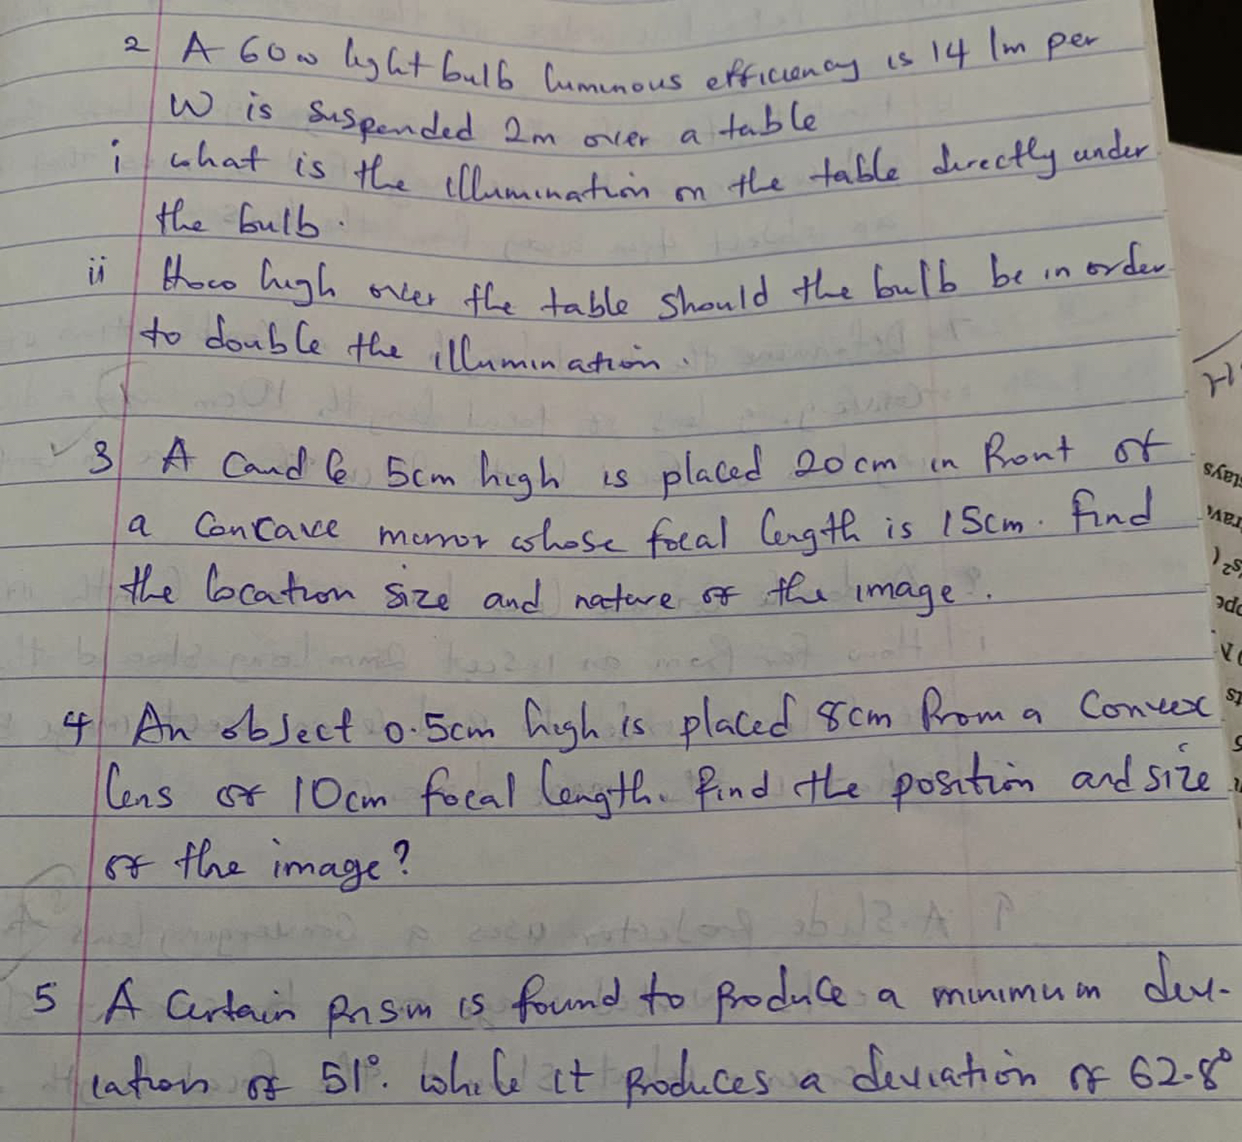 2 A 60w light bulb luminous efficiency is 14 lm per
W is suspended 2m over a table
i what is the illumination on the table directly under
the bulb.
ii How high over the table should the bulb be in order
to double the illumination.
3 A Candle 5cm high is placed 20cm in front of
a Concave mirror whose focal length is 15cm. find
the location size and nature of the image.
4 An object 0.5cm high is placed 8cm from a Convex
lens of 10cm focal length. find the position and size
of the image?
5 A Certain prism is found to produce a minimum dev-
iation of 51°. While it produces a deviation of 62.8°